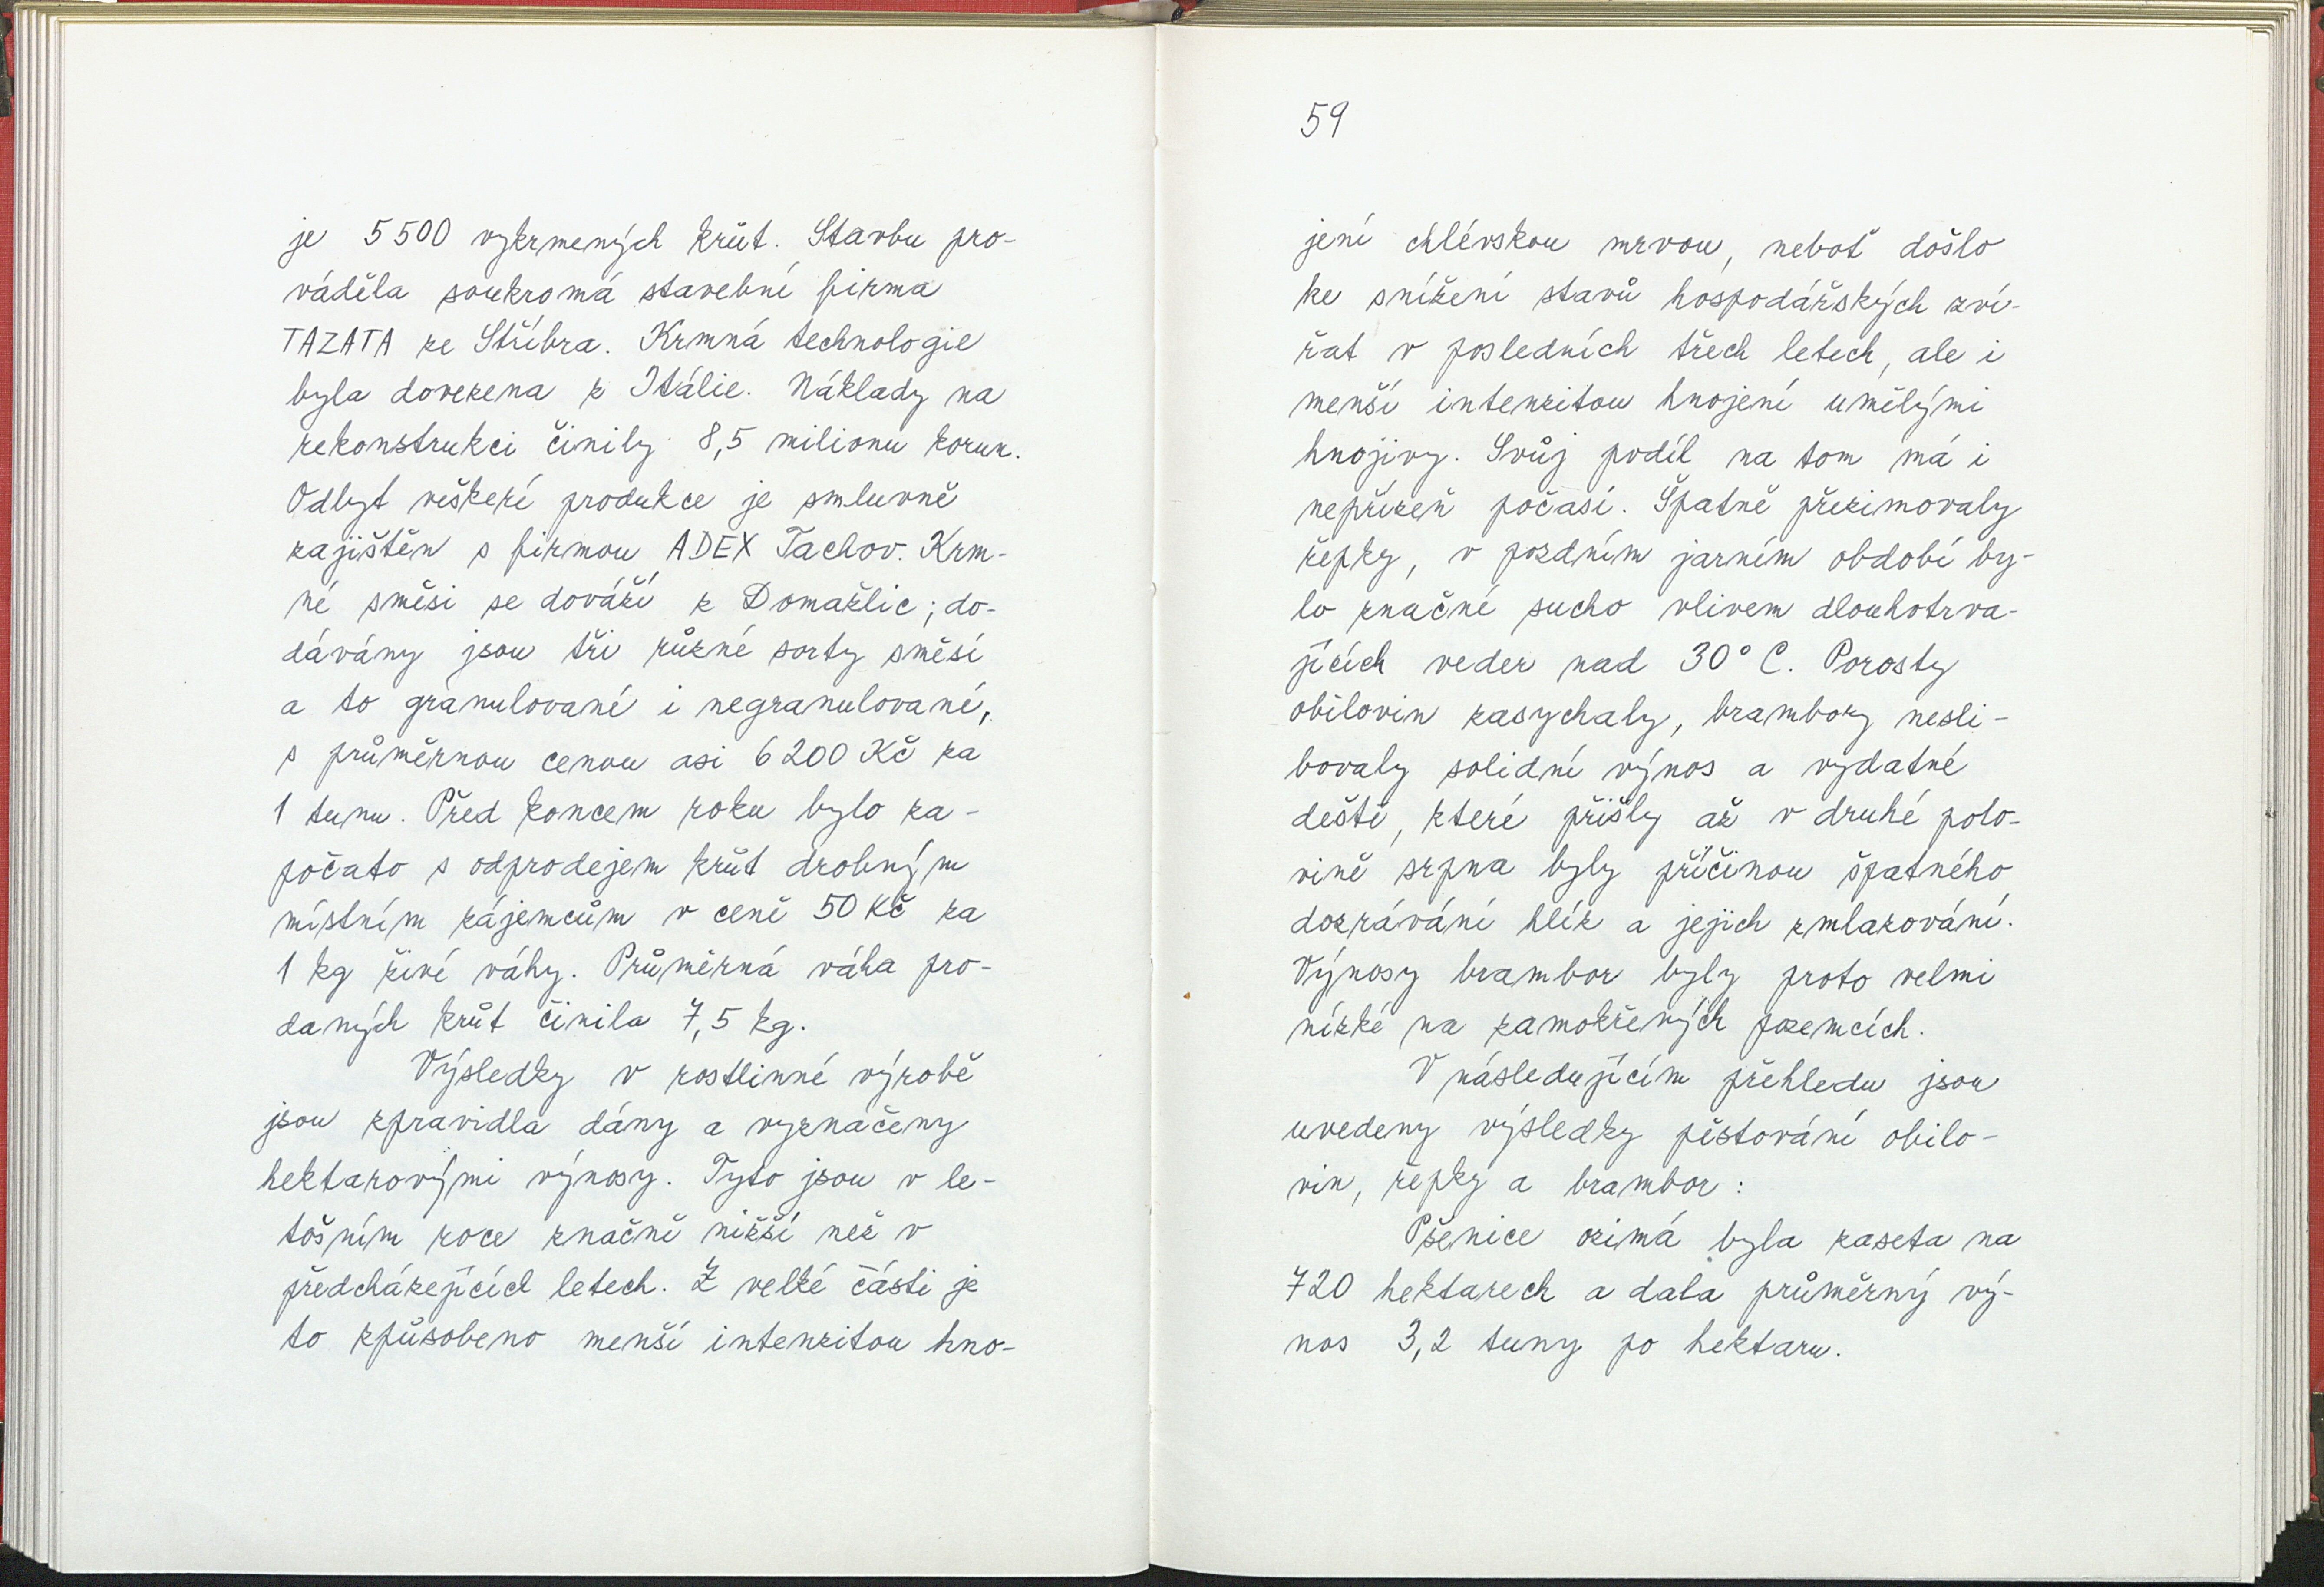 je 5500 vykrmených krůt. Stavbu pro-
váděla soukromá stavební firma
TAZATA ze Stříbra. Krmná technologie
byla dovezena z Itálie. Náklady na
rekonstrukci činily 8,5 milionu korun.
Odbyt veškeré produkce je smluvně
zajištěn s firmou ADEX Tachov. Krm-
né směsi se dováží z Domažlic; do-
dávány jsou tři různé sorty směsí
a to granulované i negranulované,
s průměrnou cenou asi 6200 Kč za
1 tunu. Před koncem roku bylo za-
počato s odprodejem krůt drobným
místním zájemcům v ceně 50 Kč za
1 kg živé váhy. Průměrná váha pro-
daných krůt činila 7,5 kg.
Výsledky v rostlinné výrobě
jsou zpravidla dány a vyznačeny
hektarovými výnosy. Tyto jsou v le-
tošním roce značně nižší než v
předcházejících letech. Z velké části je
to způsobeno menší intenzitou hno-
59
jení chlévskou mrvou, neboť došlo
ke snížení stavů hospodářských zví-
řat v posledních třech letech, ale i
menší intenzitou hnojení umělými
hnojivy. Svůj podíl na tom má i
nepřízeň počasí. Špatně přezimovaly
řepky, v pozdním jarním období by-
lo značné sucho vlivem dlouhotrva-
jících veder nad 30° C. Porosty
obilovin zasychaly, brambory nesli-
bovaly solidní výnos a vydatné
deště, které přišly až v druhé polo-
vině srpna byly příčinou špatného
dozrávání hlíz a jejich zmlazování.
Výnosy brambor byly proto velmi
nízké na zamokřených pozemcích.
V následujícím přehledu jsou
uvedeny výsledky pěstování obilo-
vin, řepky a brambor:
Pšenice ozimá byla zaseta na
720 hektarech a dala průměrný vý-
nos 3,2 tuny po hektaru.